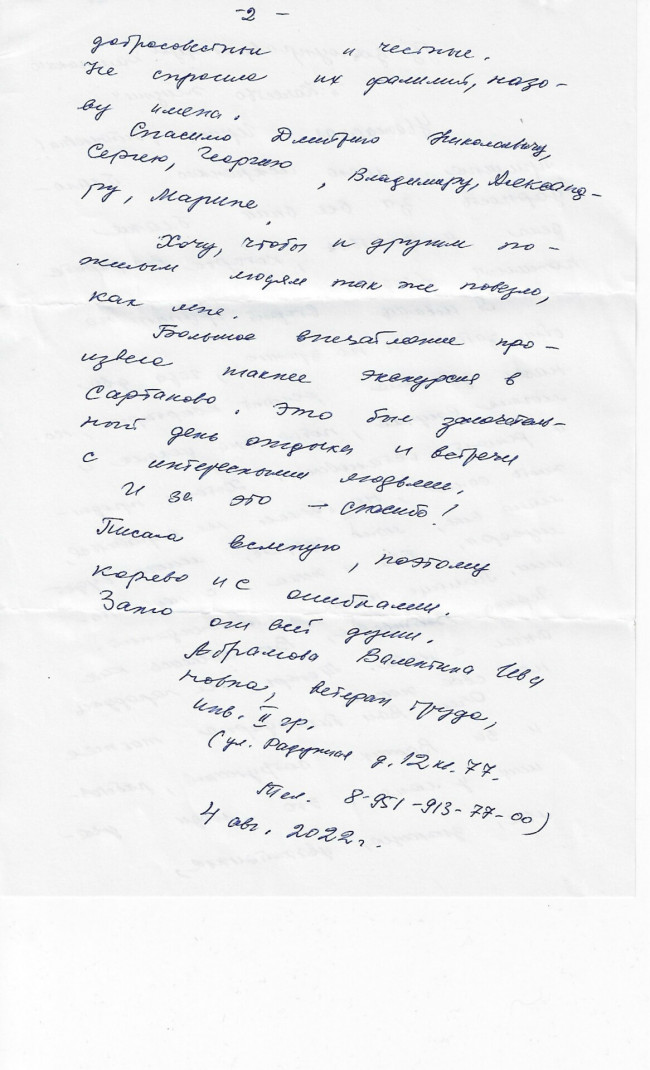 -2-
добросовестные и честные.
Не спросила их фамилий, назо-
ву имена.
Спасибо Дмитрию Николаевичу,
Сергею, Георгию, Владимиру, Александ-
ру, Марине.
Хочу, чтобы и другим по-
жилым людям так же повезло,
как мне.
Большое впечатление про-
извела также экскурсия в
Сартаково. Это был замечатель-
ный день отдыха и встречи
с интересными людьми.
И за это - спасибо!
Писала вслепую, поэтому
коряво и с ошибками.
Зато от всей души.
Абрамова Валентина Ива
новна, ветеран труда,
инв. II гр.
(ул. Радужная д. 12 кв. 77.
Тел. 8-951-913-77-00)
4 авг. 2022г.